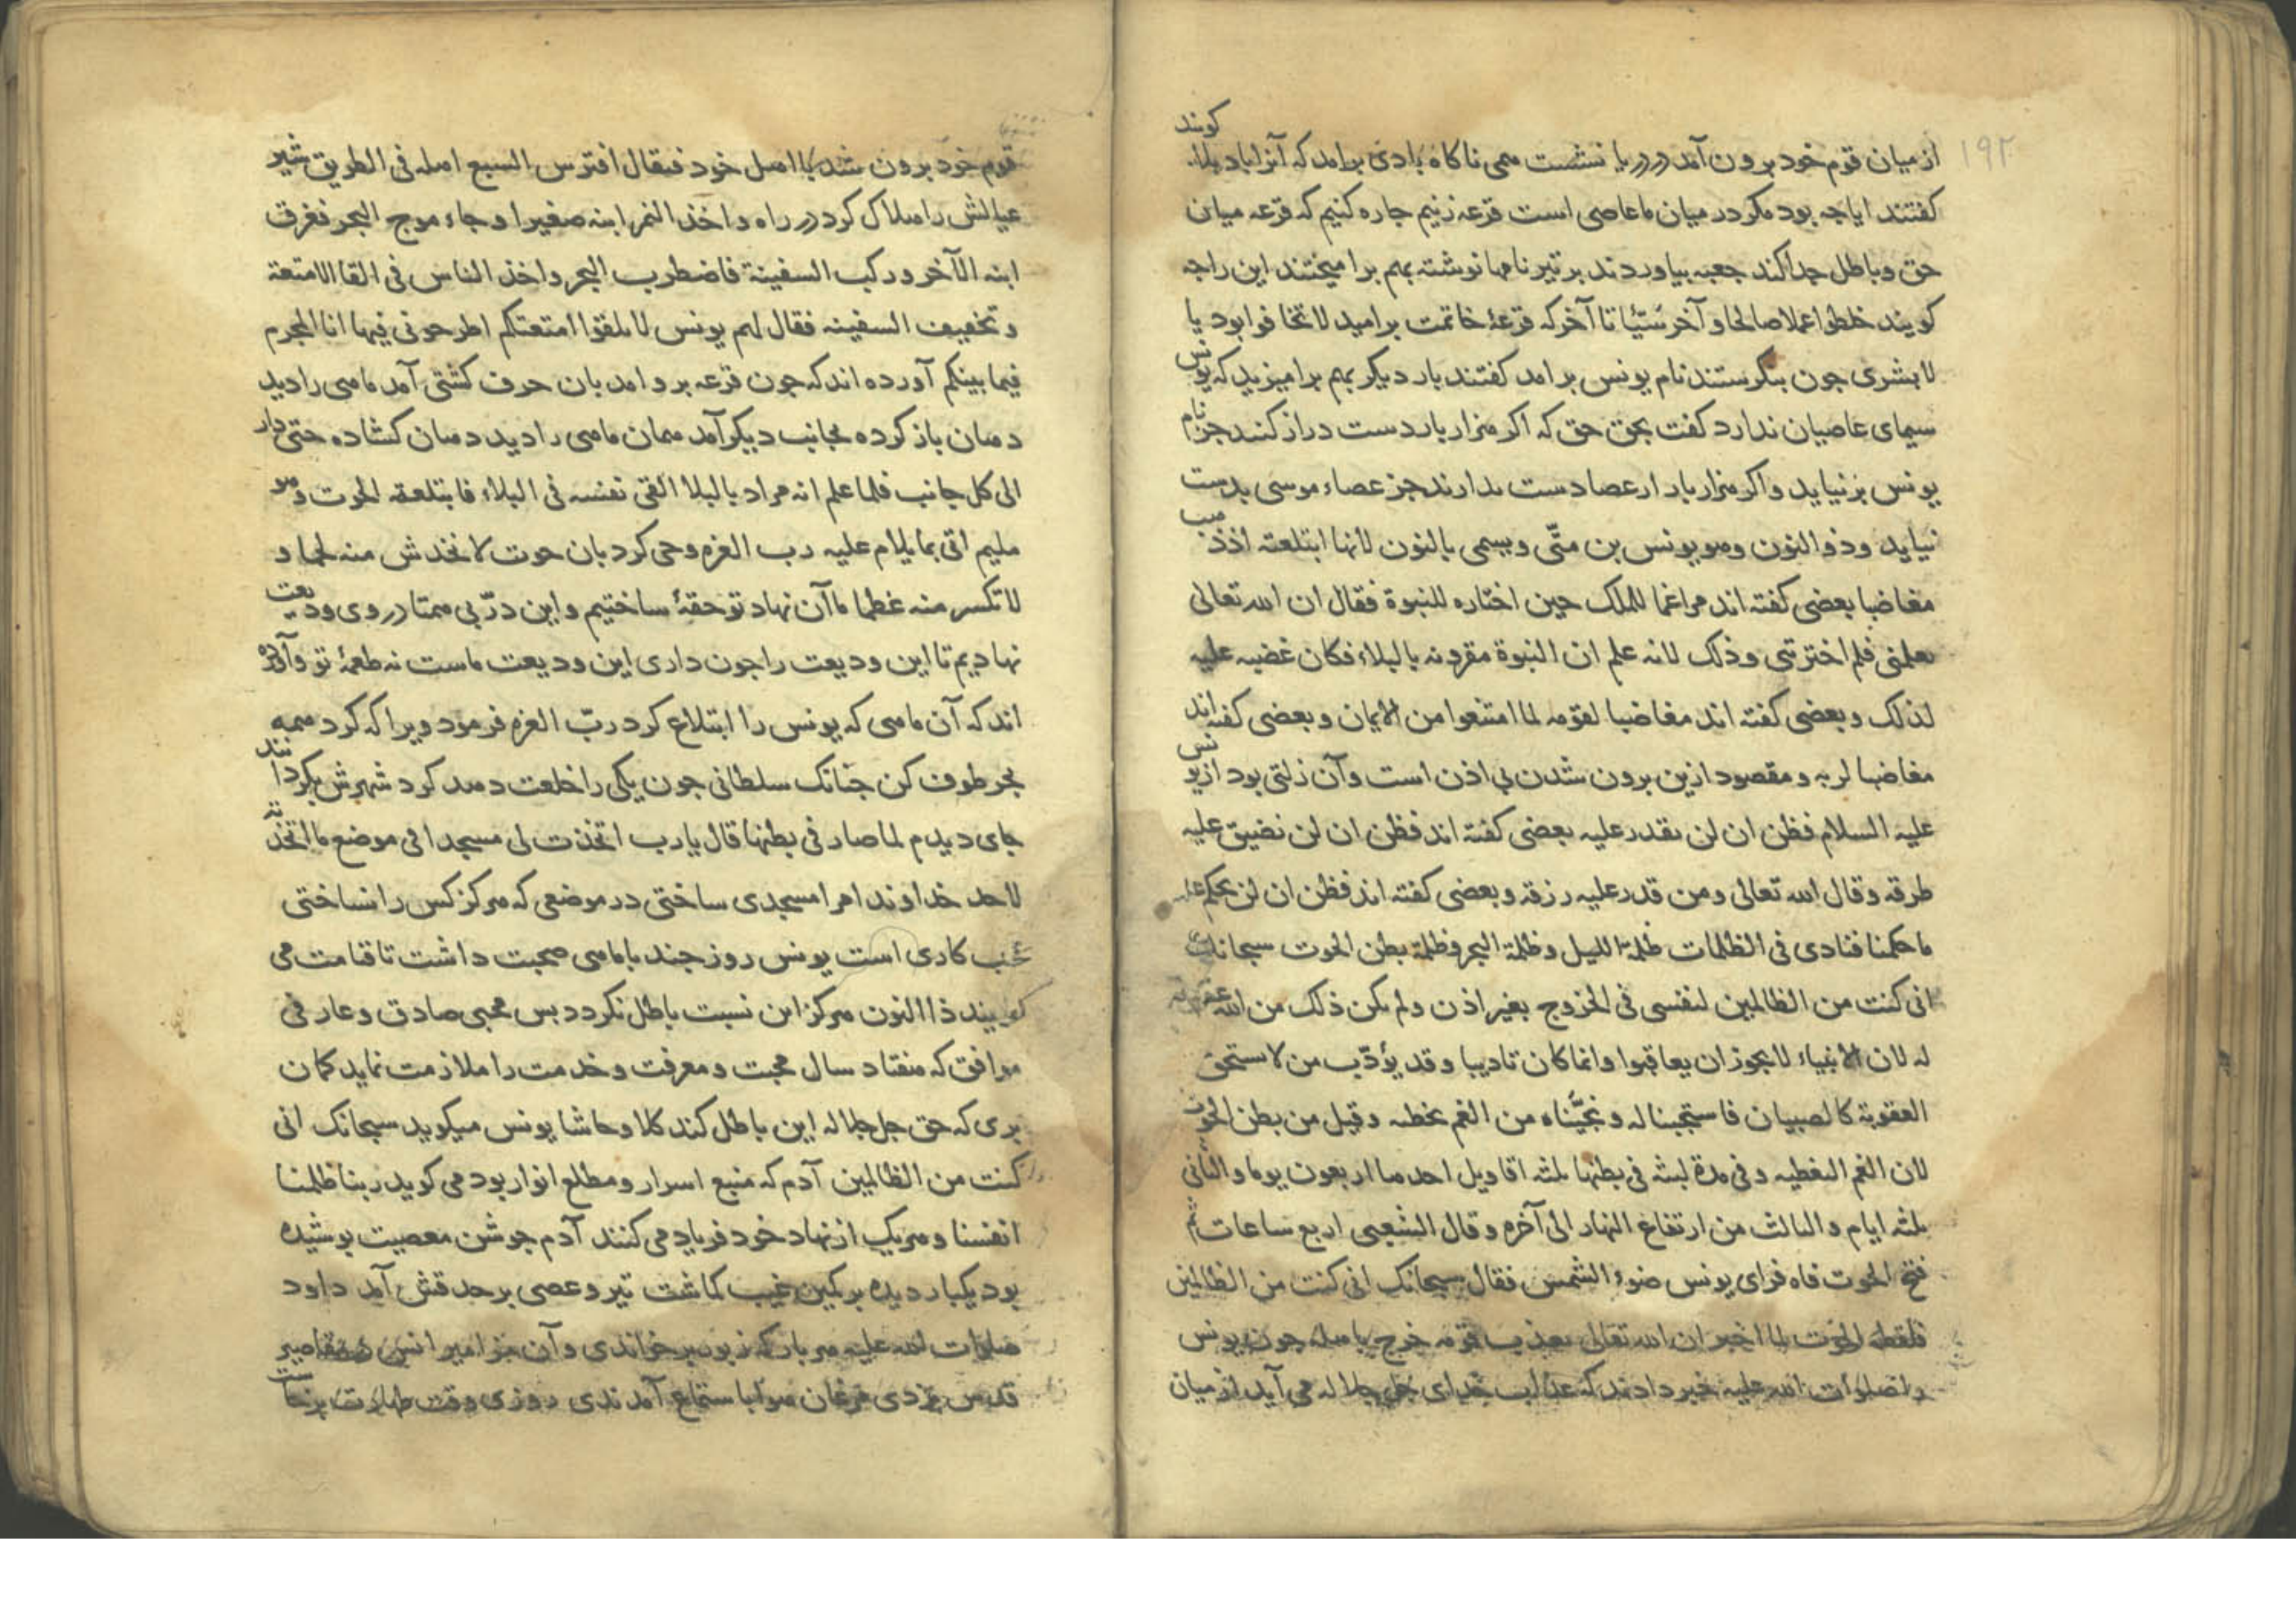 ۱۹۲
از میان قوم خود برون آمد در دریا نشست همی ناکاه بادی برامد که آنرا باد بلا کویند
کفتند ایا چه بود مکر در میان ما عاصی است قرعه زنیم چاره کنیم که قرعه میان
حق و باطل جدا کند جعبه بیاوردند بر تیر نامها نوشته بهم بر امیختند این راجه
کویند خلطوا عملا صالحا و آخر سّیئا تا آخر که قرعهٔ خاتمت برامید لا تخافوا بود یا
لا بشری جون بنکرستند نام یونس برامد کفتند بار دیکر بهم برامیزید که یونس
سیمای عاصیان ندارد کفت بحق حق که اکر هزار بار دست دراز کنند جز نام
یونس بر نیاید و اکر هزار بار ارعصا دست بدارند جز عصاء موسی بدست
نیاید وذو النون وهو یونس بن متّی ویسمی بالنون لانها ابتلعته اذ ذهب
مغاضبا بعضی کفته اند مراغما للملک حین اختاره للنبوة فقال ان الله تعالی
یعلمنی فلم اخترتنی وذلک لانه علم ان النبوة مقرونه بالبلاء فکان غضبه علیه
لذلک وبعضی کفته اند مغاضبا لقومه لما امتنعوا من الایمان وبعضی کفته اند
مغاضبا لربه و مقصود ازین برون شدن بی اذن است وآن زلتی بود از یونس
علیه السلام فظن ان لن نقدر علیه بعضی کفته اند فظن ان لن نضیق علیه
طرقه وقال الله تعالی ومن قدر علیه رزقه وبعضی کفته اند فظن ان لن نحکم علیه
ما حکمنا فنادی فی الظلمات ظلمة اللیل وظلمة البحر وظلمة بطن الحوت سبحانک
انی کنت من الظالمین لنفسی فی الخروج بغیر اذن ولم یکن ذلک من الله عقوبه
له لان الانبیاء لا یجوز ان یعاقبوا وانما کان تادیبا وقد یؤدّب من لا یستحق
العقوبة کالصبیان فاستجبنا له ونجّیناه من الغم بخطیه وقیل من بطن الحوت
لان الغم التغطیه وفی مدة لبثه فی بطنها ثلثه اقاویل احدها اربعون یوما والثانی
ثلثه ایام والثالث من ارتفاع النهار الی آخره وقال الشعبی اربع ساعات ثم
فتح الحوت فاه فرای یونس ضوء الشمس فقال سبحانک انی کنت من الظالمین
فلفظه الحوت لما اخبر ان الله تعالی یعذب قومه خرج باهله جون یونس
را صلوات الله علیه خبر دادند که عذاب خدای جل جلاله می آید از میان
قوم خود برون شد با اهل خود فیقال افترس السبع اهله فی الطریق شیر
عیالش را هلاک کرد در راه واخذ النمر ابنه صغیرا وجاء موج البحر فغرق
ابنه الآخر ورکب السفینة فاضطرب البحر واخذ الناس فی القا الامتعة
وتخفیف السفینه فقال لهم یونس لا تلقوا امتعتکم اطرحونی فیها انا المجرم
فیما بینکم آورده اند که جون قرعه برو امد بان حرف کشتی آمد ماهی را دید
دهان باز کرده بجانب دیکر آمد همان ماهی را دید دهان کشاده حتی دار
الی کل جانب فلما علم انه مراد بالبلا القی نفسه فی البلاء فابتلعه الحوت وهو
ملیم اتی بما یلام علیه رب العزه وحی کرد بان حوت لا تخدش منه لحما و
لا تکسر منه عظما ما آن نهاد تو حقهٔ ساختیم واین درّ بی همتا در وی ودیعت
نهادیم تا این ودیعت را جون داری این ودیعت ماست نه طعمهٔ تو وآورده
اند که آن ماهی که یونس را ابتلاع کرد ربّ العزه فرمود ویرا که کرد همه
بحر طوف کن جنانک سلطانی جون یکی را خلعت دهد کرد شهرش بکردانند
جای دیدم لما صار فی بطنها قال یا رب اتخذت لی مسجدا فی موضع ما اتخذته
لاحد خداوندا مرا مسجدی ساختی در موضعی که هرکز کس را نساختی
عجب کاری است یونس روز جند با ماهی صحبت داشت تا قیامت می
کویند ذا النون هرکز این نسبت باطل نکردد بس محبی صادق وعارفی
موافق که هفتاد سال محبت و معرفت وخدمت را ملازمت نماید کمان
بری که حق جل جلاله این باطل کند کلا وحاشا یونس میکوید سبحانک انی
کنت من الظالمین آدم که منبع اسرار و مطلع انوار بود می کوید ربنا ظلمنا
انفسنا وهریک از نهاد خود فریاد می کنند آدم جوشن معصیت بوشیده
بود یکبار دیده بر کمین غیب کماشت تیر وعصی بر حدقش آمد داود
صلوات الله علیه هر بار که زبور بر خواندی وآن مزامیر انس در مقاصیر
قدس بزدی مرغان هوا باستماع آمدندی روزی وقت طهارت برخاست